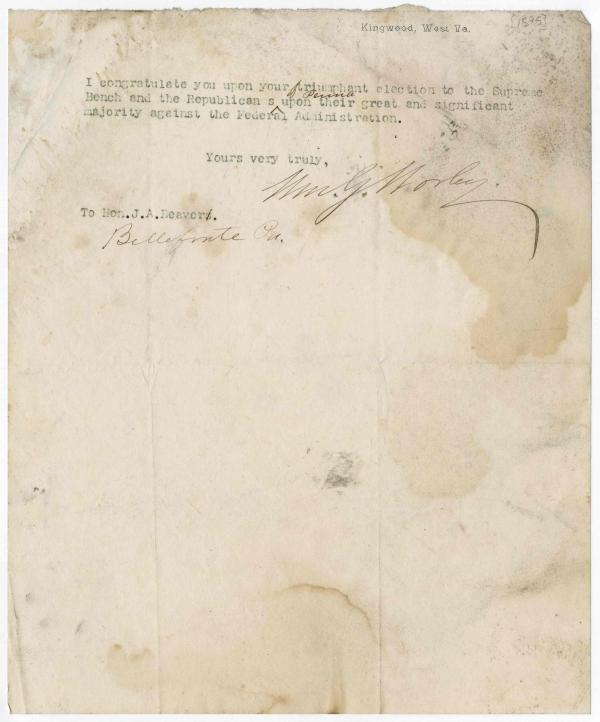 Kingwood, West Va.
[1895]
I congratulate you upon your triumphant election to the Supreme
of Penna
Bench and the Republican s upon their great and significant
majority against the Federal Administration.
Yours very truly,
Wm. G. Worley.
To Hon.J.A.Beavers.
Bellefonte Pa.